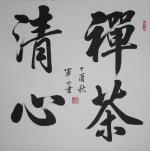 禪茶
清心
丁酉秋